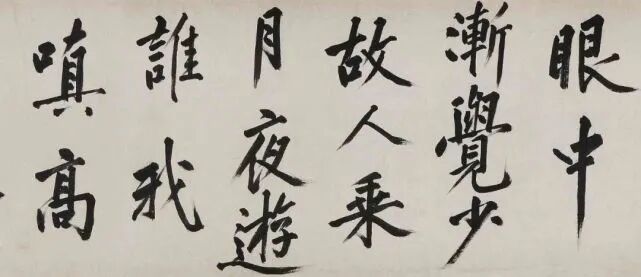 眼中
漸覺少
故人乘
月夜遊
誰我
嗔高